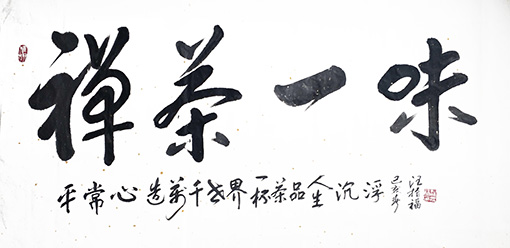 禅茶一味
平常心造万千世界一杯茶品人生沉浮
己亥年
汪桂福